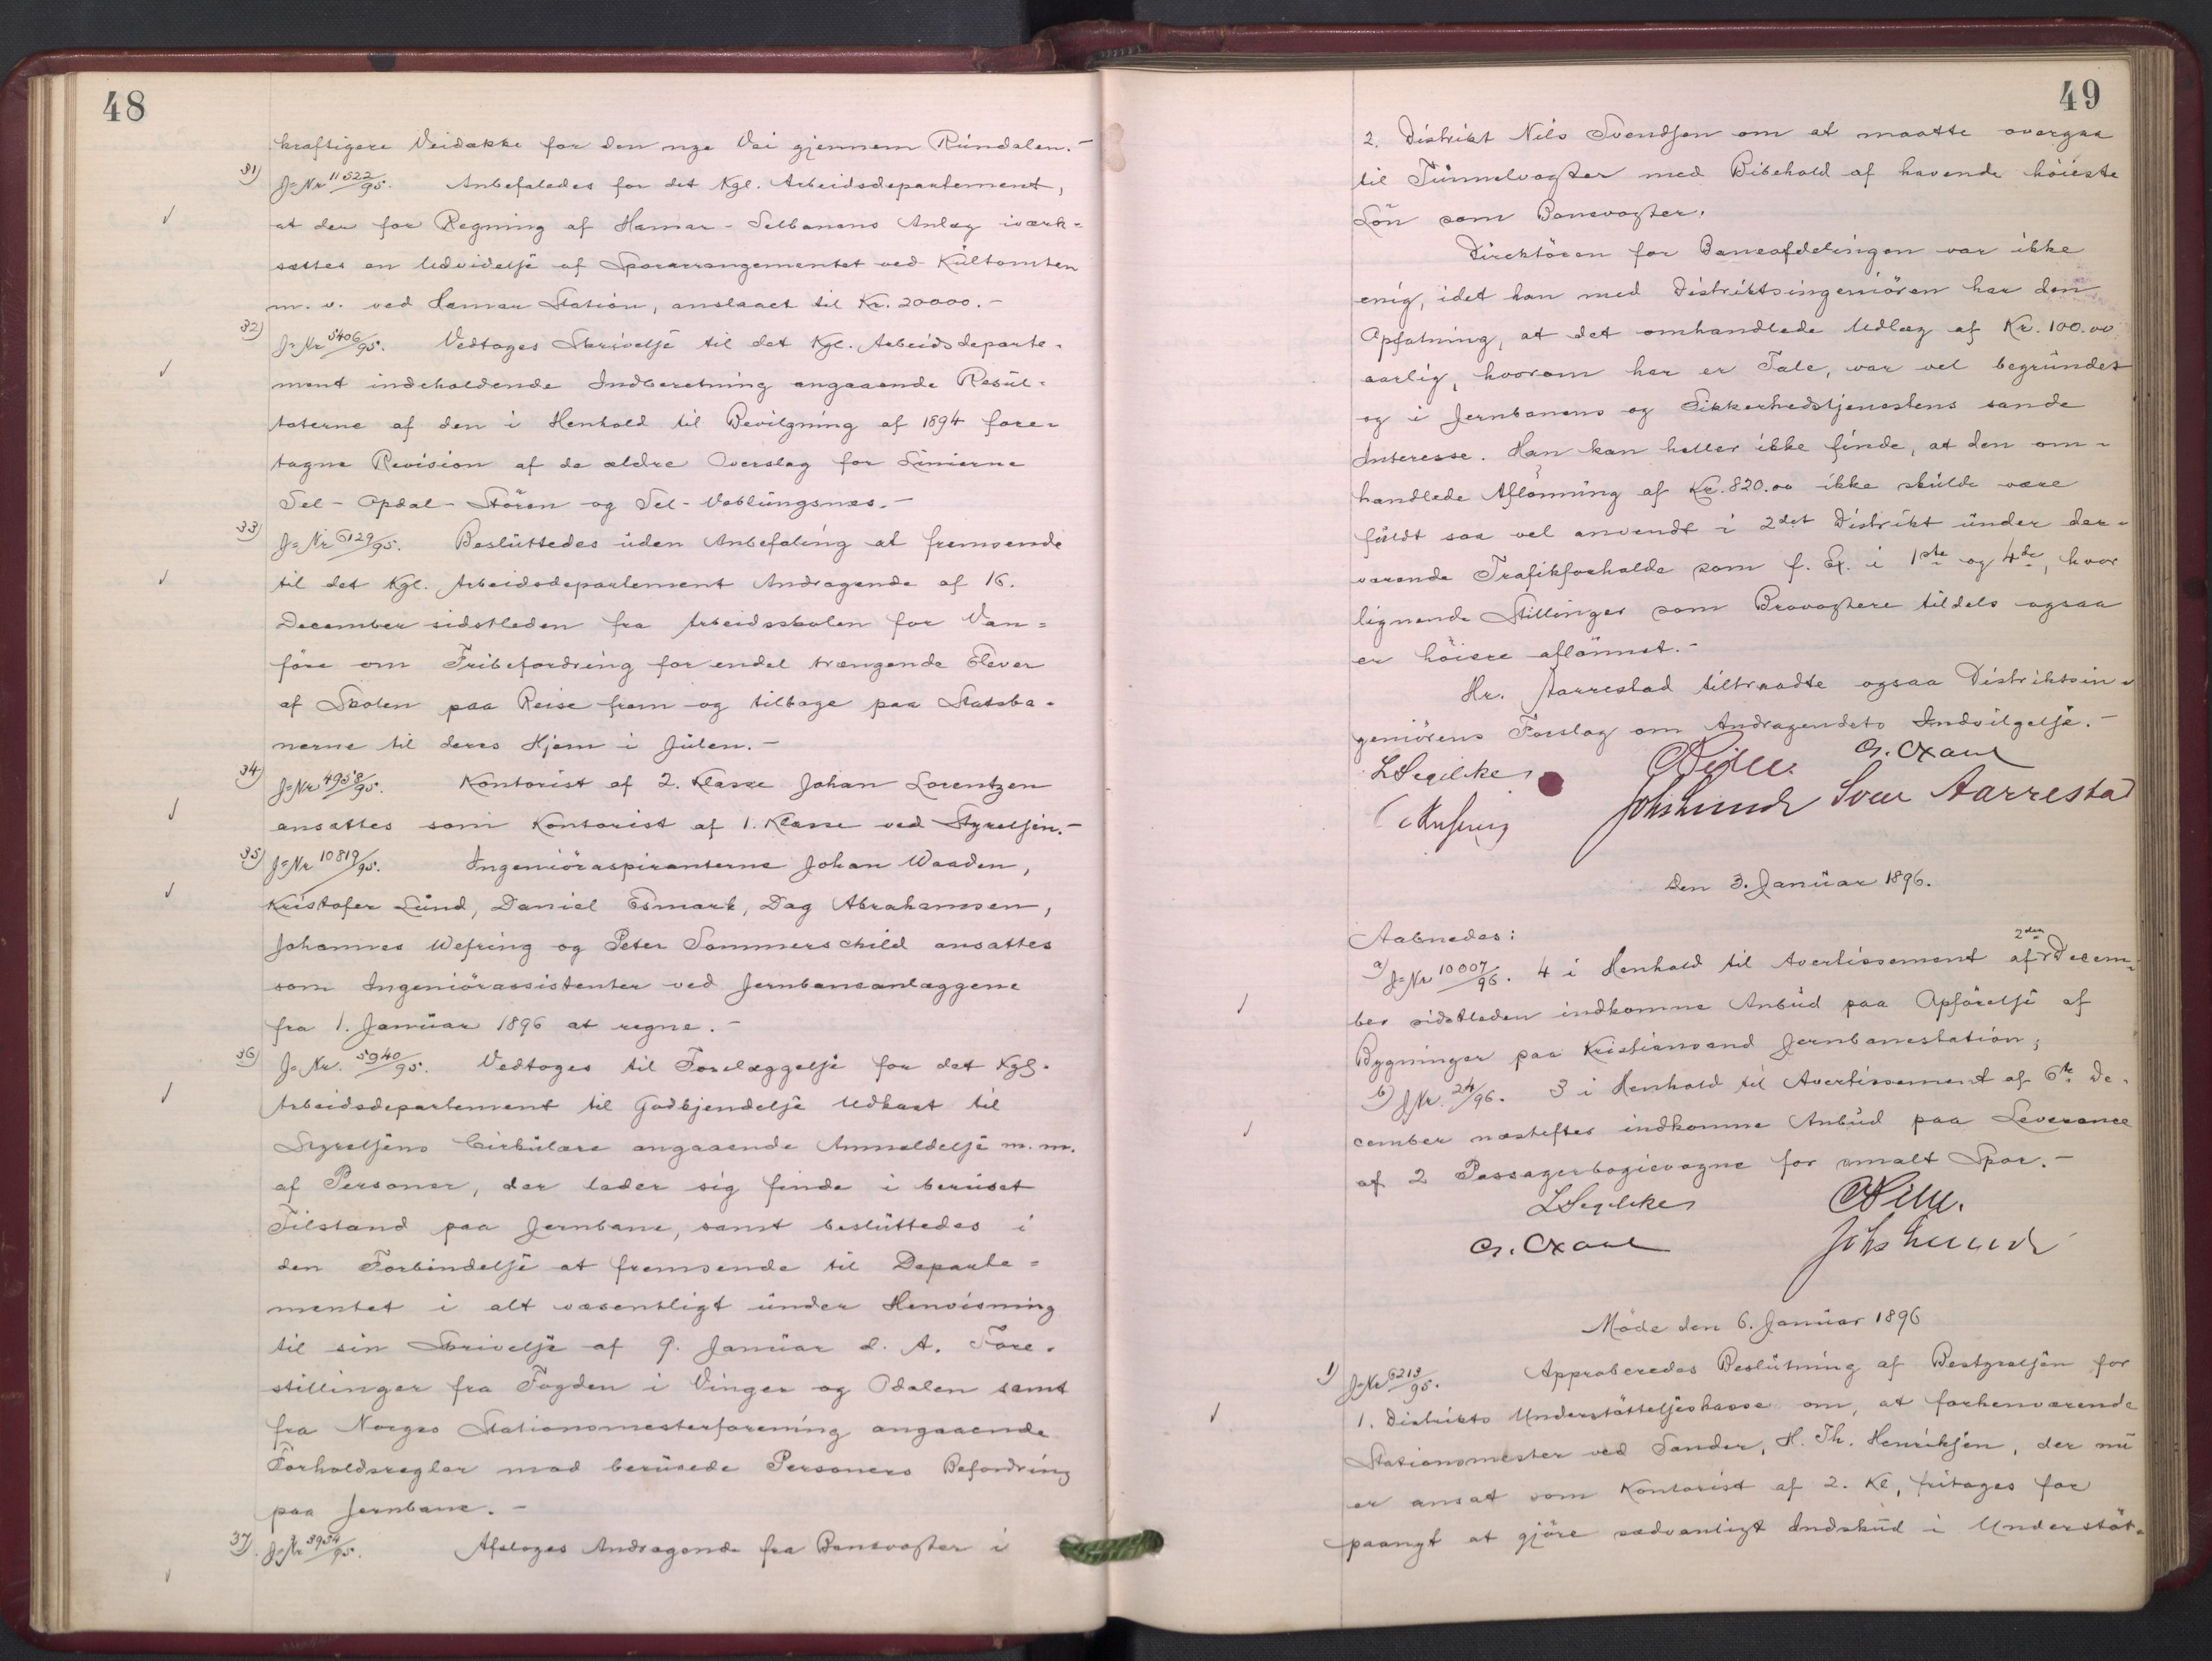 48
kraftigere Veidække for den nye Vei gjennem Rundalen.-
31) J=Nr 11522/95. Anbefaledes for det Kgl. Arbeidsdepartement,
at der for Regning af Hamar-Selbanens Anlæg iværk=
sættes en Udvidelse af Sporarrangementet ved Kultomten
m. v. ved Hamar Station, anslaaet til Kr. 20000.-
32) J=Nr 5406/95. Vedtoges Skrivelse til det Kgl. Arbeidsdeparte=
ment indeholdende Indberetning angaaende Resul=
taterne af den i Henhold til Bevilgning af 1894 fore=
tagne Revision af de ældre Overslag for Linierne
Sel-Opdal-Stören og Sel-Veblungsnæs.-
33) J=Nr 6129/95. Besluttedes uden Anbefaling at fremsende
til det Kgl. Arbeidsdepartement Andragende af 16.
December sidstleden fra Arbeidsskolen for Van=
före om Fribefordring for endel trængende Elever
af Skolen paa Reise frem og tilbage paa Statsba=
nerne til deres Hjem i Julen.-
34) J=Nr 4958/95. Kontorist af 2. Klasse Johan Lorentzen
ansattes som Kontorist af 1. Klasse ved Styrelsen.-
35) J=Nr 10819/95. Ingeniöraspiranterne Johan Waaden,
Kristofer Lund, Daniel Esmark, Dag Abrahamsen,
Johannes Wefring og Peter Sommerschild ansattes
som Ingeniörassistenter ved Jernbaneanlæggene
fra 1. Januar 1896 at regne.-
36) J=Nr. 5940/95. Vedtoges til Forelæggelse for det Kgl.
Arbeidsdepartement til Godkjendelse Udkast til
Styrelsens Cirkulære angaaende Anmeldelse m. m.
af Personer, der lader sig finde i beruset
Tilstand paa Jernbane, samt besluttedes i
den Forbindelse at fremsende til Departe=
mentet i alt væsentligt under Henvisning
til sin Skrivelse af 9. Januar d. A. Fore=
stillinger fra Fogden i Vinger og Odalen samt
fra Norges Stationsmesterforening angaaende
Forholdsregler mod berusede Personers Befordring
paa Jernbane.-
37) J=Nr 3954/95. Afsloges Andragende fra Banevogter i
49
2. Distrikt Nils Svendsen om at maatte overgaa
til Tunnelvogter med Bibehold af havende höieste
Lön som Banevogter.
Direktören for Baneafdelingen var ikke
enig, idet han med Distriktsingeniören har den
Opfatning, at det omhandlede Udlæg af Kr. 100.00
aarlig, hvorom her er Tale, var vel begrundet
og i Jernbanens og Sikkerhedstjenestens sande
Interesse. Han kan heller ikke finde, at den om=
handlede Aflönning af Kr. 820.00 ikke skulde være
fuldt saa vel anvendt i 2det Distrikt under der=
værende Trafikforholde som f. Ex. i 1ste og 4de, hvor
lignende Stillinger som Brovogtere tildels ogsaa
er höiere aflönnet.-
Hr. Aarrestad tiltraadte ogsaa Distriktsin=
geniörens Forslag om Andragendets Indvilgelse.-
LSegelcke
Joh Lund Sven Aarrestad
Den 3. Januar 1896.
Aabnedes:
a) J=Nr 10007/96. 4 i Henhold til Avertissement af 2den Decem=
ber sidstleden indkomne Anbud paa Opförelse af
Bygninger paa Kristiansand Jernbanestation;
b) JNr. 24/96. 3 i Henhold til Avertissement af 6te De=
cember næstefter indkomne Anbud paa Leverance
af 2 Passagerbogievogne for smalt Spor.-
LSegelcke
Joh Lund
Möde den 6. Januar 1896
1) J=Nr 6213/95. Approberedes Beslutning af Bestyrelsen for
1. Distrikts Understöttelseskasse om, at forhenværende
Stationsmester ved Sander, H. Th. Henriksen, der nu
er ansat som Kontorist af 2. Kl, fritages for
paanyt at gjöre sædvanligt Indskud i Understöt=